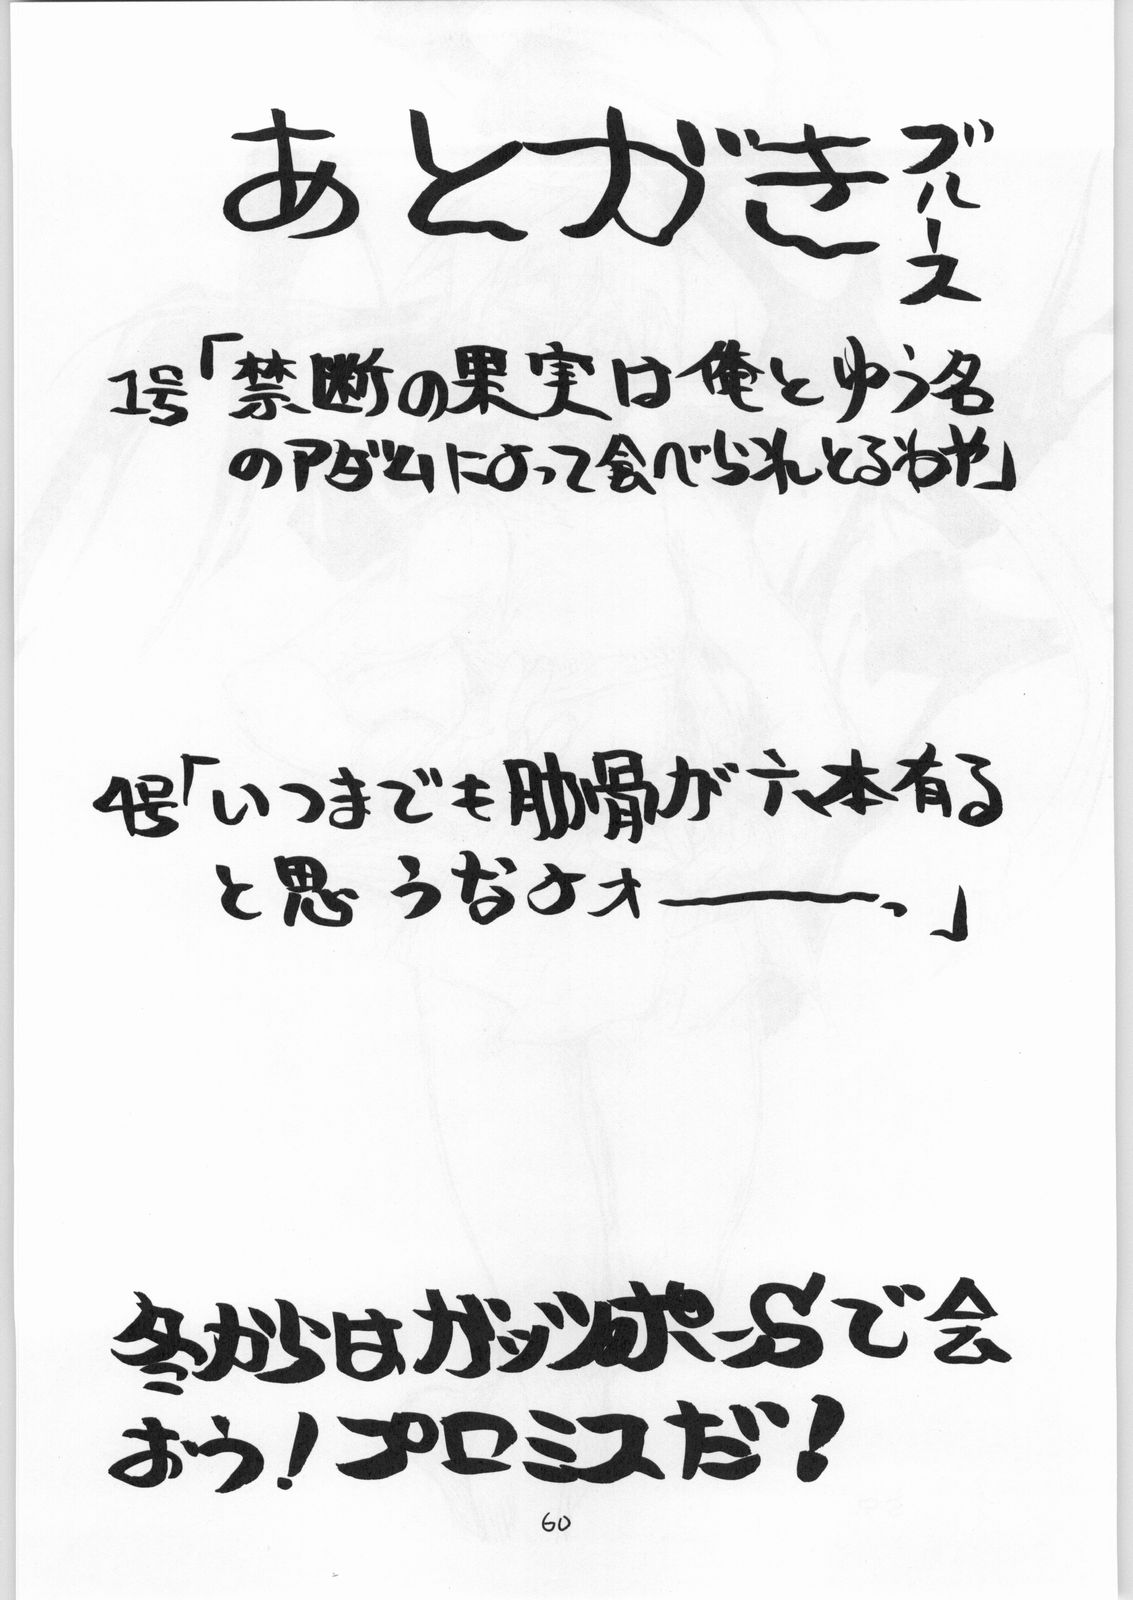 あとがき ブルース
1号「禁断の果実は俺とゆう名
のアダムによって会べられとるわや」
4号「いつまでも肋骨が六本有る
と思うなよォーーっ」
冬からはガッツポーSで会
おう!プロミスだ!
60